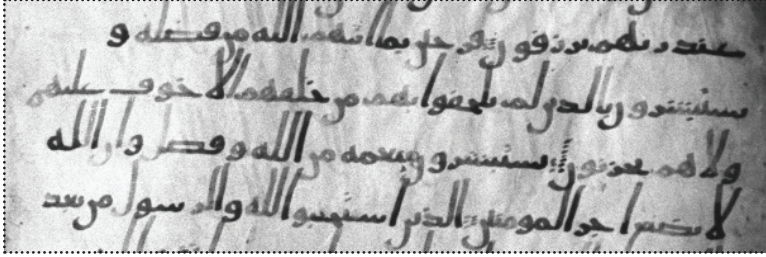 عند ربهم يرزقون فرحين بما اتىهم الله من فضله و
يستبشرون بالذين لم يلحقوا بهم من خلفهم الا خوف عليهم
ولا هم يحزنون يستبشرون بنعمه من الله وفضل وان الله
لا يضيع اجر المومنين الذين استجبوا لله والرسول من بعد